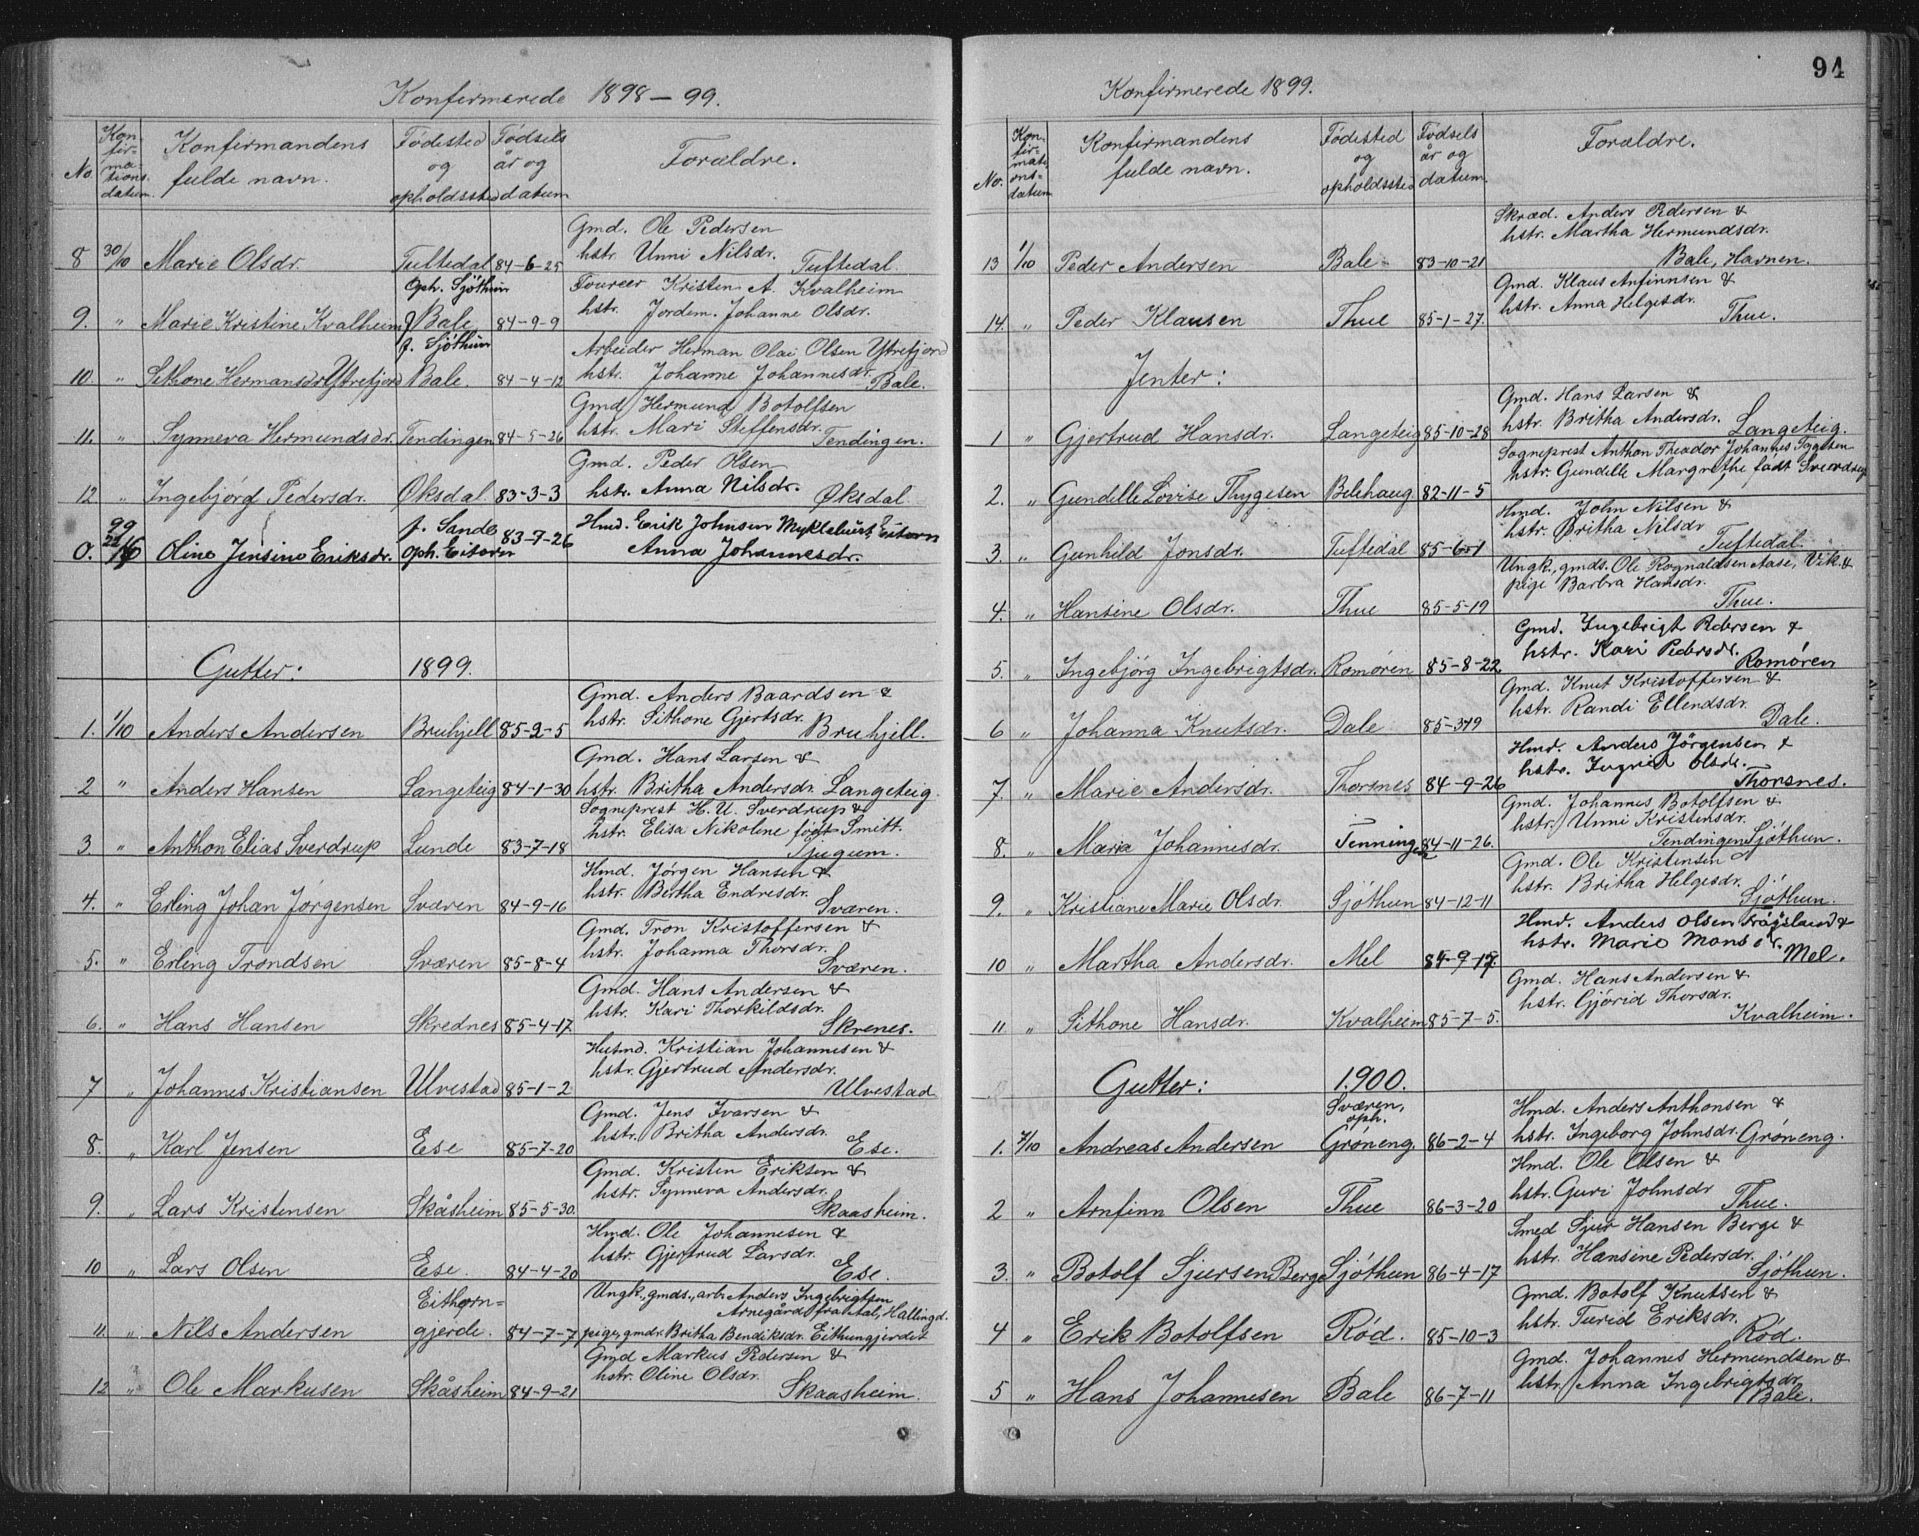 Konfirmerede 1898-99.
No. Konfirmationsdatum. Konfirmandens fulde navn. Fødested og opholdssted Fødsels år og datum Forældre.
Gmd. Ole Pedersen
8 30/10 Marie Olsdr. Tuftedal 84-6-25 hstr. Unni Nilsdr. Tuftedal
Oph. Sjøthun Toureer Kristen A. Kvalheim
9. " Marie Kristine Kvalheim f Bale 84-9-9 hstr. Jordem. Johanne Olsdr.
f. Sjøthun Arbeider Herman Olai Olsen Ytrefjord
10. " Sithone Hermansdr Ytrefjord Bale. 84-4-12 hstr. Johanne Johannesdr. Bale.
Gmd Hermund Botolfsen
11. " Synneva Hermundsdr. Tendingen 84-5-26 hstr. Mari Steffensdr. Tendingen.
Gmd. Peder Olsen
12 " Ingebjørg Pedersdr. Øksdal 83-3-3 hstr. Anna Nilsdr. Øksdal
99 f. Sande Hmd. Erik Johnsen Myklebust, Eitorn
0. Oline Jensine Eriksdr. Oph. Eitorn 83-7-26 Anna Johannesdr.
Gutter: 1899.
Gmd. Anders Baardsen &
1. 1/10 Anders Andersen Bruhjell 85-2-5 hstr. Sithone Gjertsdr. Bruhjell.
Gmd. Hans Larsen &
2 " Anders Hansen Langeteig 84-1-30 hstr. Britha Andersdr. Langeteig.
Sogneprest H. U. Sverdrup &
3. " Anthon Elias Sverdrup Lunde 83-7-18 hstr. Elisa Nikoline født Smitt. Njugum.
Hmd. Jørgen Hansen &
4. " Erling Johan Jørgensen Sværen 84-9-16 hstr. Bertha Endresdr. Sværen.
Gmd. Tron Kristoffersen &
5. " Erling Trondsen Sværen 85-8-4 hstr. Johanna Thorsdr. Sværen.
Gmd. Hans Andersen &
6. " Hans Hansen Skrednes 85-4-17 hstr. Kari Thorkildsdr. Skrenes.
Husmd. Kristian Johannesen &
7 " Johannes Kristiansen Ulvestad 85-1-2 hstr. Gjertrud Andersdr. Ulvestad
Gmd. Jens Ivarsen &
8. " Karl Jensen Ese 85-7-20 hstr. Britha Andersdr. Ese.
Gmd. Kristen Eriksen &
9. " Lars Kristensen Skåsheim 85-5-30. hstr. Synneva Andersdr. Skaasheim.
Hmd. Ole Johannesen &
10 " Lars Olsen Ese. 84-4-20 hstr. Gjertrud Larsdr. Ese.
Eithorn- Ungk., gmds., arb. Anders Ingebrigtsen
Arnegård fra Aal, Hallingd.
11 " Nils Andersen gjerde. 84-7-7 pige, gmdr. Britha Bendiksdr. Eithungjerdet
Gmd Markus Pedersen &
12 " Ole Markusen Skåsheim 84-9-21 hstr. Oline Olsdr. Skaasheim.
94
Konfirmerede 1899.
No. Konfirmationsdatum Konfirmandens fulde navn. Fødested og opholdssted Fødsels år og datum. Forældre.
Skræd. Anders Pedersen &
13 1/10 Peder Andersen Bale 83-10-21 hstr. Martha Hermundsdr. Bale, Havnen.
Gmd. Klaus Anfinnsen &
14. " Peder Klausen Thue 85-1-27. hstr. Anna Helgesdr. Thue.
Jenter:
Gmd. Hans Larsen &
1 " Gjertrud Hansdr. Langeteig 85-10-28 hstr. Britha Andersdr. Langeteig.
Sogneprest Anthon Theodor Johannes Tygesen
2. " Gundelle Lovise Thygesen Belehaug 82-11-5 hstr. Gundelle Margrethe født Sverdrup
Hmd. John Nilsen &
3. " Gunhild Jonsdr. Tuftedal 85-6-1 hstr. Britha Nilsdr Tuftedal.
Ungk., gmds. Ole Rognaldsen Aase, Vik. &
4. " Hansine Olsdr. Thue 85-5-19 pige Barbra Hansdr. Thue.
Gmd. Ingebrigt Pedersen &
5. " Ingebjörg Ingebrigtsdr. Romøren 85-8-22 hstr. Kari Pedersdr. Romøren
Gmd. Knut Kristoffersen &
6 " Johanna Knutsdr. Dale 85-3-19 hstr. Randi Ellendsdr. Dale.
Hmd. Anders Jörgensen &
7. " Marie Andersdr. Thorsnes 84-9-26 hstr. Ingrid Olsdr. Thorsnes.
Gmd. Johannes Botolfsen &
8. " Maria Johannesdr. Tenningen 84-11-26. hstr. Unni Kristensdr. Tendingen Sjøthun.
Gmd. Ole Kristensen &
9. " Kristiane Marie Olsdr. Sjøthun 84-12-11 hstr. Britha Helgesdr. Sjøthun.
Hmd. Anders Olsen Frøgsland &
10 " Martha Andersdr. Mel 84-9-17. hstr. Marie Monsdr. Mel.
Gmd. Hans Andersen &
11 " Sithone Hansdr. Kvalheim 85-7-5. hstr. Gjørid Thorsdr. Kvalheim.
Gutter: 1900.
Sværen, oph. Hmd. Anders Anthonsen &
1. 7/10 Andreas Andersen Grøneng 86-2-4 hstr. Ingeborg Johnsdr. Grøneng.
Hmd. Ole Olsen &
2 " Arnfinn Olsen Thue 86-3-20 hstr. Guri Johnsdr Thue.
Smed Sjur Hansen Berge &
3. " Botolf Sjursen Berge Sjøthun 86-4-17 hstr. Hansine Pedersdr. Sjøthun.
Gmd. Botolf Knutsen &
4 " Erik Botolfsen Rød. 85-10-3 hstr. Turid Eriksdr. Rød.
Gmd. Johannes Hermundsen &
5 " Hans Johannesen Bale 86-7-11 hstr. Anna Ingebrigtsdr. Bale.